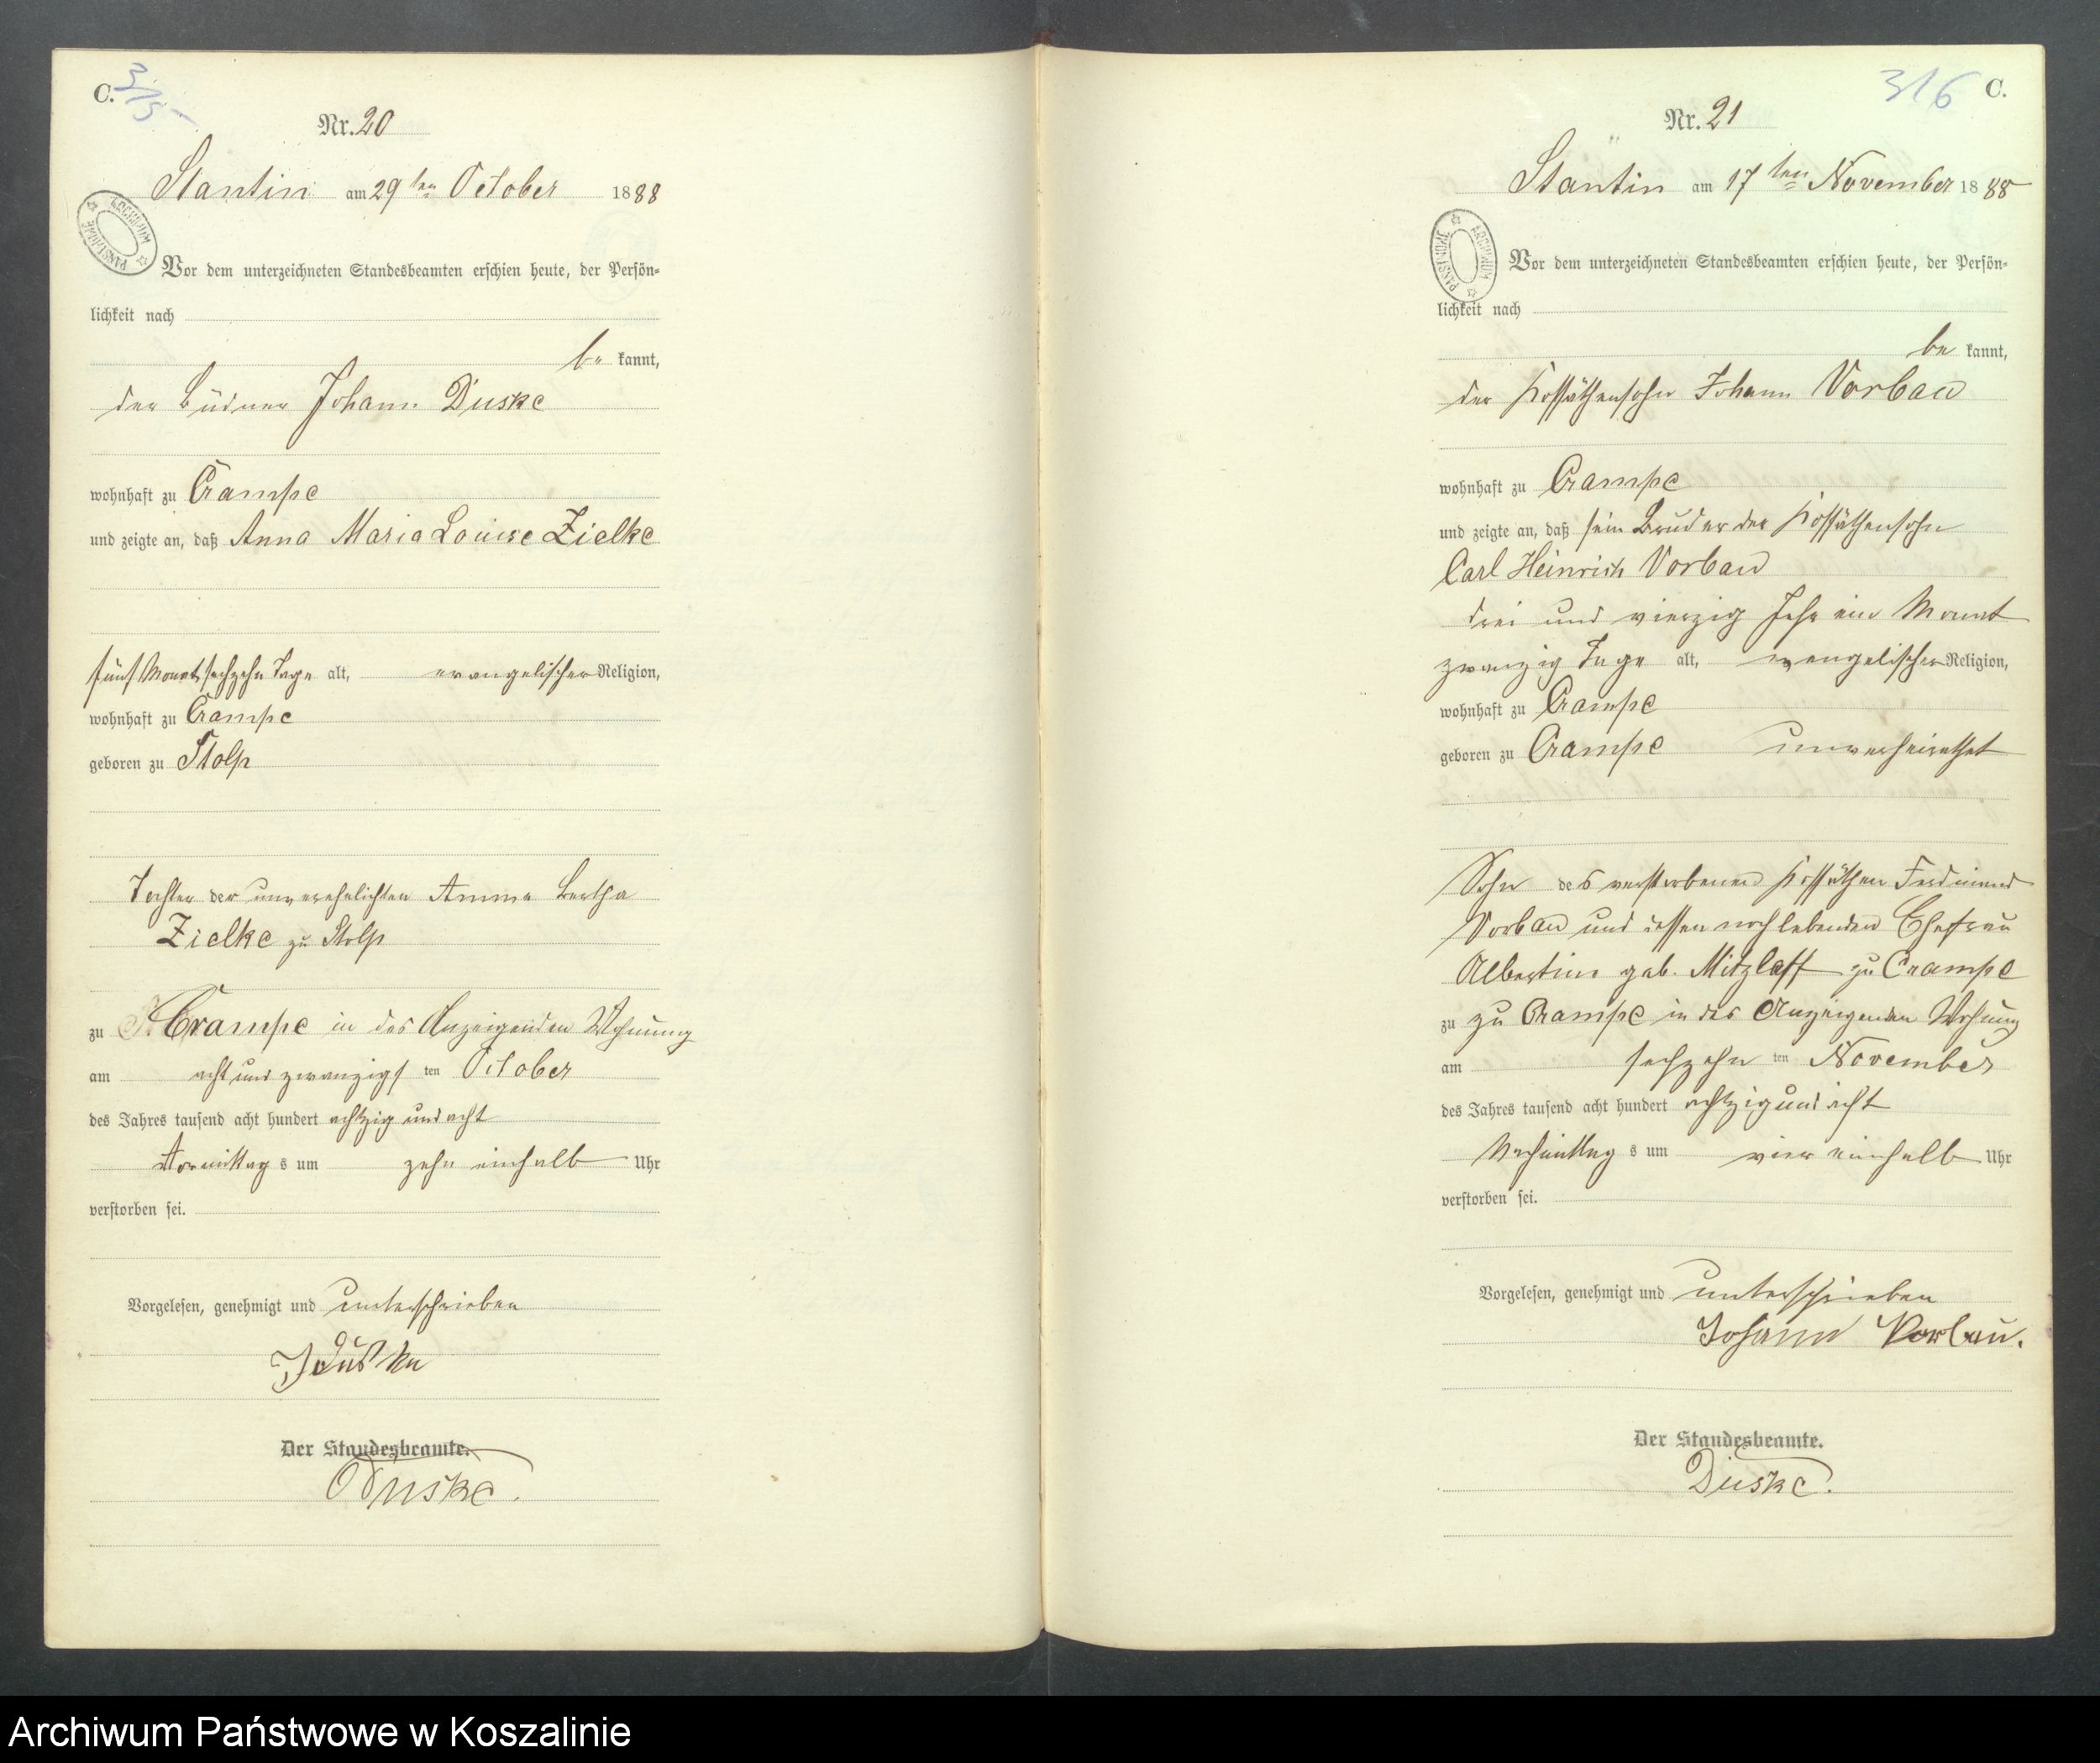 C.
315
Nr. 20
Stantin am 29ten October 1888
ARCHIWUM PAŃSTWOWE
Vor dem unterzeichneten Standesbeamten erschien heute, der Persön-
lichkeit nach
be kannt,
der Büdner Johann Duske
wohnhaft zu Crampe
und zeigte an, daß Anna Maria Louise Zielke
fünf Monat sechzehn Tage alt, evangelischer Religion,
wohnhaft zu Crampe
geboren zu Stolp
Tochter der unverehelichten Anna Bertha
Zielke zu Stolp
zu Crampe in des Anzeigenden Wohnung
am acht und zwanzigs ten October
des Jahres tausend acht hundert achtzig und acht
Vormittag s um zehn einhalb Uhr
verstorben sei.
Vorgelesen, genehmigt und unterschrieben
J Duske
Der Standesbeamte.
Duske.
316 C.
Nr. 21
Stantin am 17ten November 1888
ARCHIWUM PAŃSTWOWE
Vor dem unterzeichneten Standesbeamten erschien heute, der Persön-
lichkeit nach
be kannt,
der Kossäthensohn Johann Vorbau
wohnhaft zu Crampe
und zeigte an, daß sein Bruder der Kossäthensohn
Carl Heinrich Vorbau
drei und vierzig Jahr ein Monat
zwanzig Tage alt, evangelischer Religion,
wohnhaft zu Crampe
geboren zu Crampe unverheirathet
Sohn des verstorbenen Kossäthen Ferdinand
Vorbau und dessen noch lebenden Ehefrau
Albertine geb. Mitzlaff zu Crampe
zu zu Crampe in des Anzeigenden Wohnung
am sechzehn ten November
des Jahres tausend acht hundert achtzig und acht
Nachmittag s um vier einhalb Uhr
verstorben sei.
Vorgelesen, genehmigt und unterschrieben
Johann Vorbau.
Der Standesbeamte.
Duske.
Archiwum Państwowe w Koszalinie